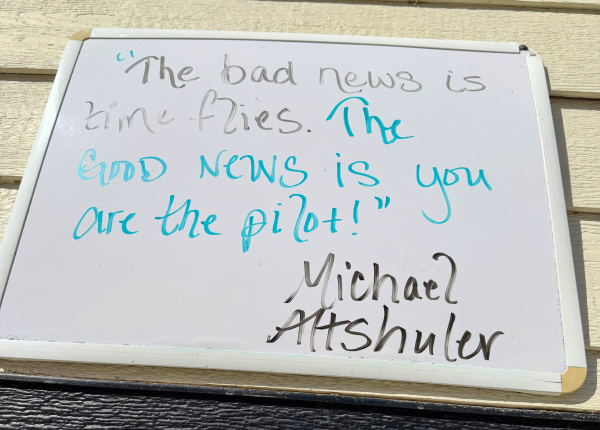 "The bad news is
time flies. The
GOOD NEWS is you
are the pilot!"
Michael
Altshuler